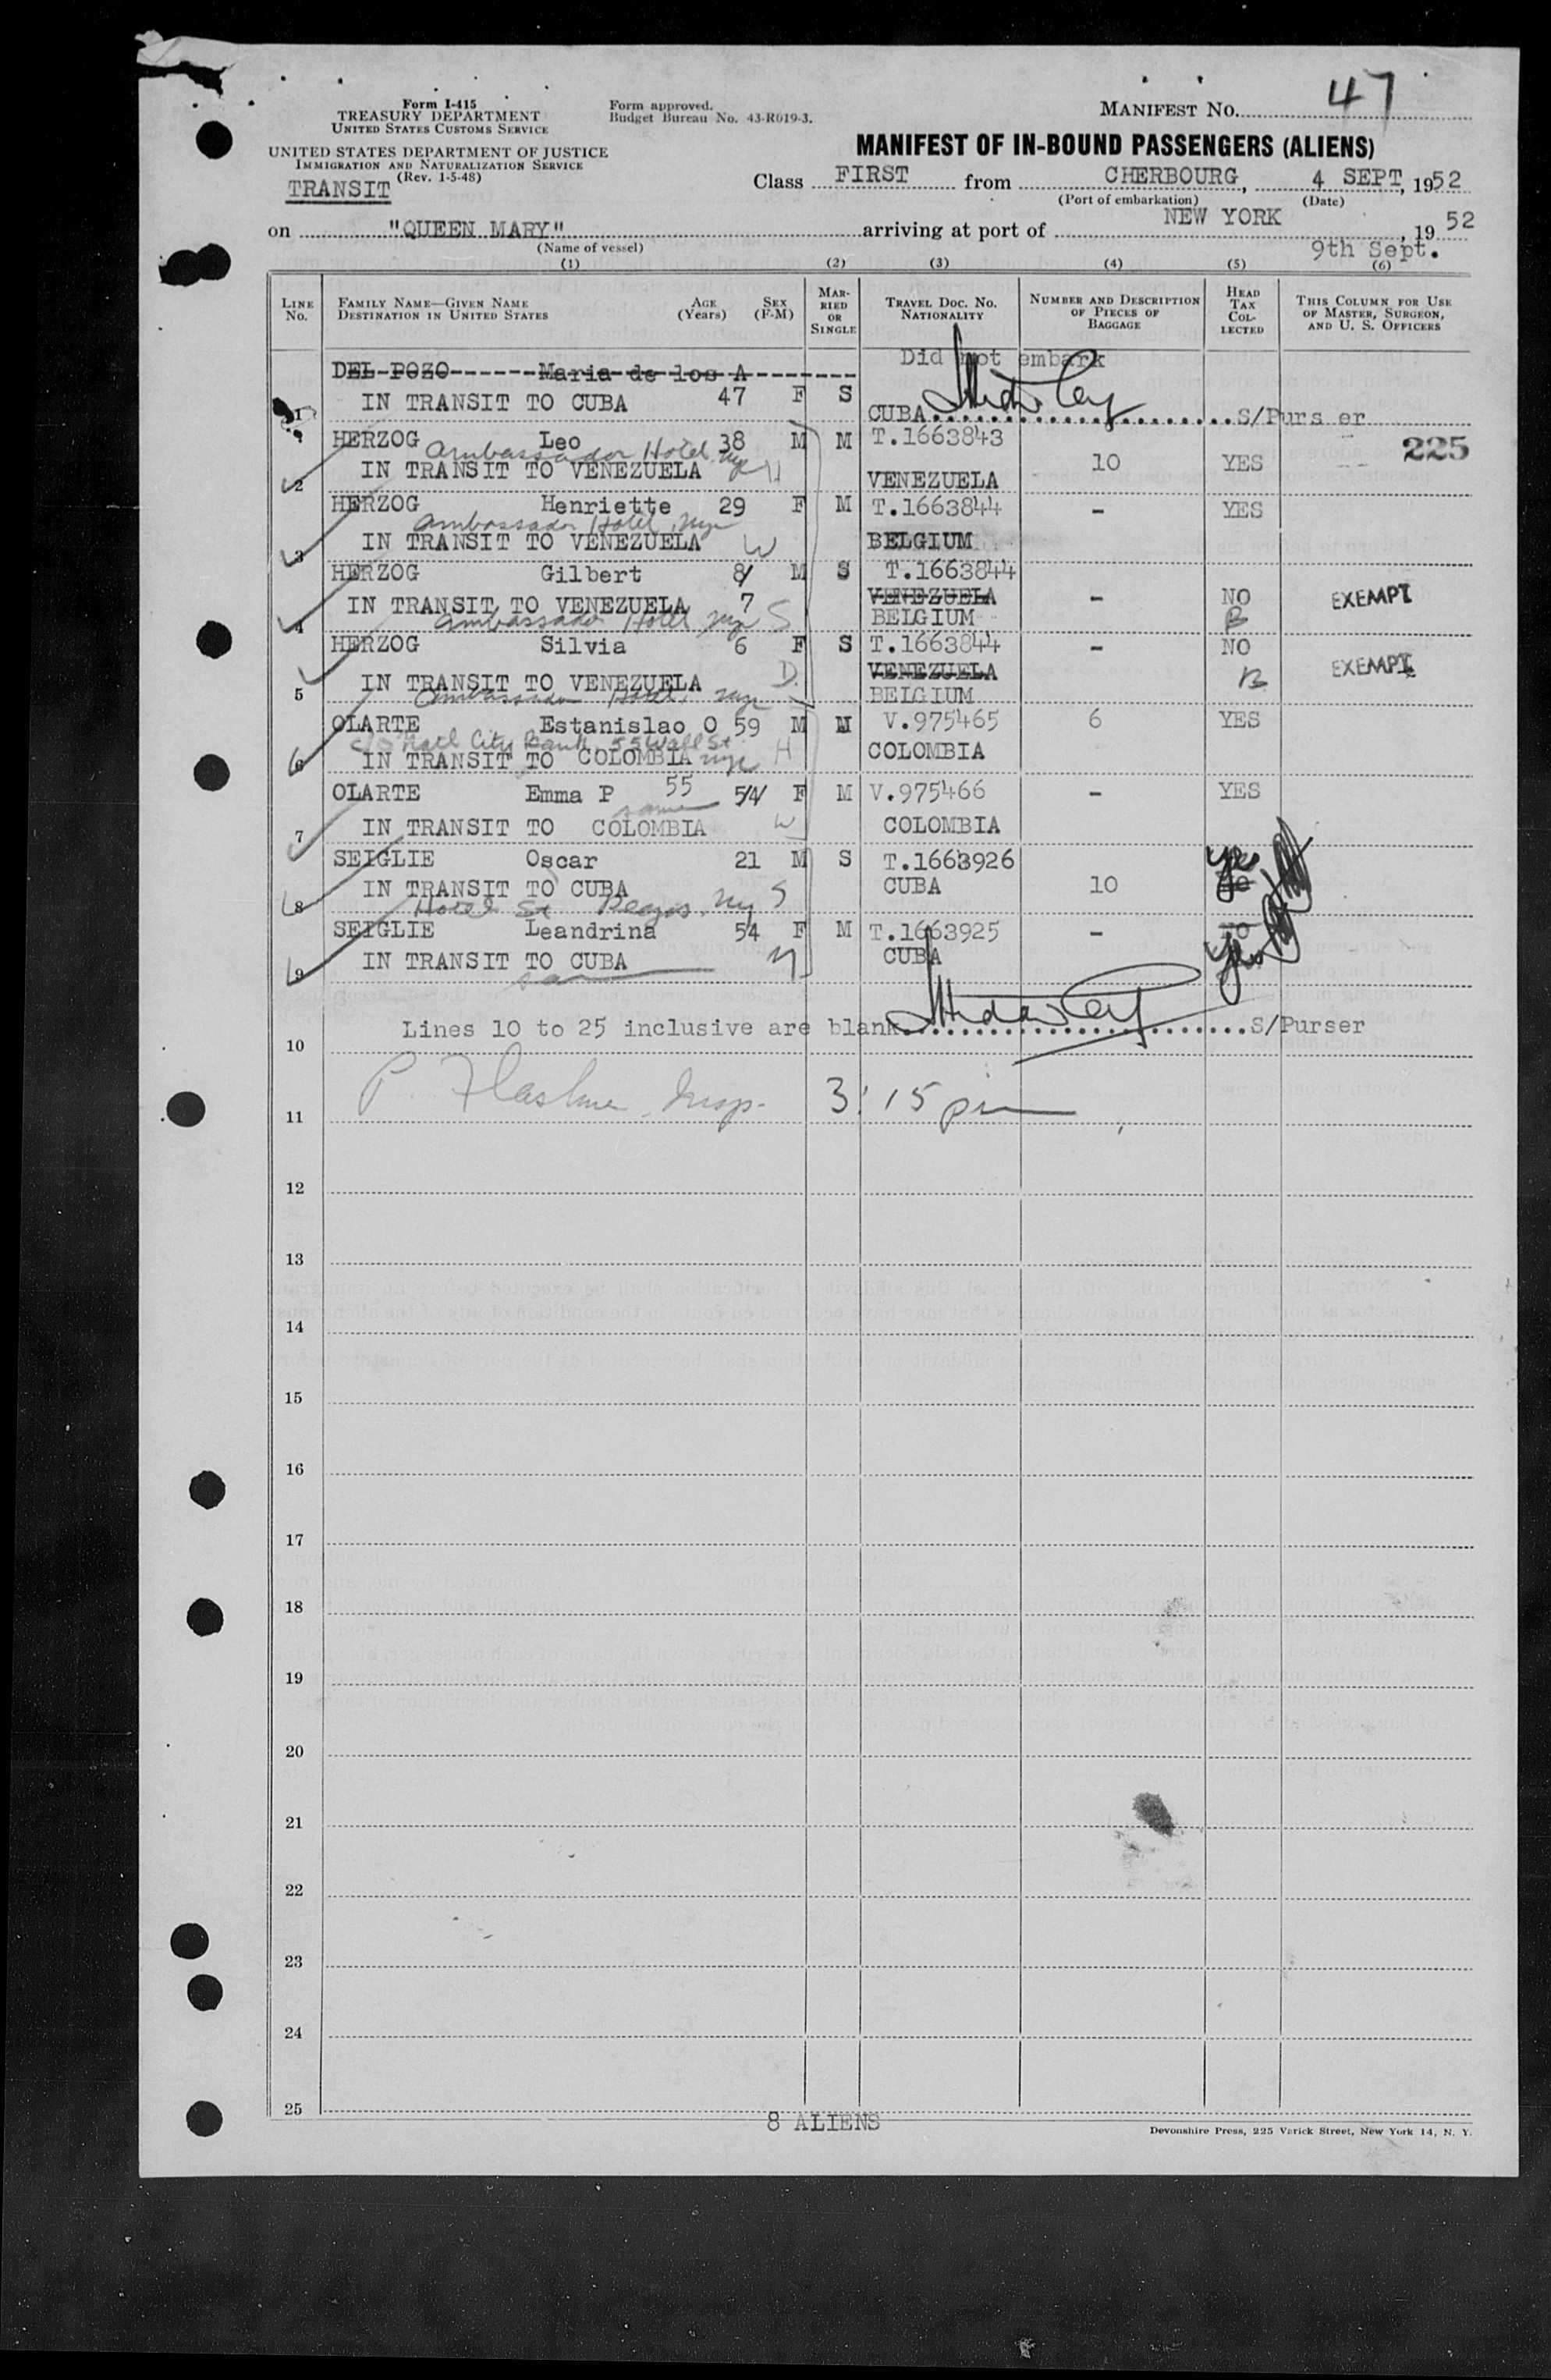 Form I-415
TREASURY DEPARTMENT
UNITED STATES CUSTOMS SERVICE
Form approved.
Budget Bureau No. 43-R019-3.
MANIFEST No. 47
UNITED STATES DEPARTMENT OF JUSTICE
IMMIGRATION AND NATURALIZATION SERVICE
(Rev. 1-5-48)
TRANSIT
MANIFEST OF IN-BOUND PASSENGERS (ALIENS)
Class FIRST from CHERBOURG, 4 SEPT, 1952
(Port of embarkation) (Date)
on "QUEEN MARY" arriving at port of NEW YORK, 1952
(Name of vessel) 9th Sept.
(1) (2) (3) (4) (5) (6)
LINE No. FAMILY NAME—GIVEN NAME DESTINATION IN UNITED STATES AGE (Years) SEX (F-M) MARRIED OR SINGLE TRAVEL DOC. No. NATIONALITY NUMBER AND DESCRIPTION OF PIECES OF BAGGAGE HEAD TAX COLLECTED THIS COLUMN FOR USE OF MASTER, SURGEON, AND U. S. OFFICERS
DEL POZO Maria de los A Did not embark
1 IN TRANSIT TO CUBA 47 F S CUBA S/Purser
HERZOG Leo 38 M M T.1663843 225
Ambassador Hotel, nyc
2 IN TRANSIT TO VENEZUELA H VENEZUELA 10 YES
HERZOG Henriette 29 F M T.1663844 - YES
Ambassador Hotel, nyc
3 IN TRANSIT TO VENEZUELA W BELGIUM
HERZOG Gilbert 8 M S T.1663844
4 IN TRANSIT TO VENEZUELA 7 VENEZUELA - NO EXEMPT
Ambassador Hotel nyc S BELGIUM B
HERZOG Silvia 6 F S T.1663844 - NO
5 IN TRANSIT TO VENEZUELA D. VENEZUELA B EXEMPT
Ambassador Hotel, nyc BELGIUM
OLARTE Estanislao O 59 M M V.975465 6 YES
c/o Natl City Bank, 55 Wall St.
6 IN TRANSIT TO COLOMBIA nyc H COLOMBIA
OLARTE Emma P 55 54 F M V.975466 - YES
same
7 IN TRANSIT TO COLOMBIA W COLOMBIA
SEIGLIE Oscar 21 M S T.1663926 Yes
8 IN TRANSIT TO CUBA CUBA 10
Hotel St Regis, ny S
SEIGLIE Leandrina 54 F M T.1663925 -
9 IN TRANSIT TO CUBA M CUBA Yes
Lines 10 to 25 inclusive are blank S/Purser
10
11 P. Insp. 3:15 pm
12
13
14
15
16
17
18
19
20
21
22
23
24
25
8 ALIENS
Devonshire Press, 225 Varick Street, New York 14, N. Y.